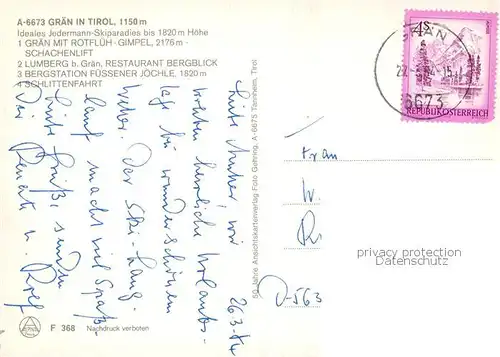 A-6673 GRÄN IN TIROL, 1150 m
Ideales Jedermann-Skiparadies bis 1820 m Höhe
1 GRÄN MIT ROTFLÜH - GIMPEL, 2176 m -
SCHACHENLIFT
2 LUMBERG b. Grän, RESTAURANT BERGBLICK
3 BERGSTATION FÜSSENER JÖCHLE, 1820 m
4 SCHLITTENFAHRT
26.3.84
Liebe Mutter, wir
erleben herrliche Urlaubs-
tage bei wunderschönem
Wetter. Der Ski-Lang-
lauf macht viel Spaß.
Liebe Grüße senden
Dir Renate u. Rolf
50 Jahre Ansichtskartenverlag Foto Gehring, A-6675 Tannheim, Tirol
F 368 Nachdruck verboten
4S
REPUBLIK ÖSTERREICH
GRÄN
6673
Frau
W.
D-563
privacy protection
Datenschutz